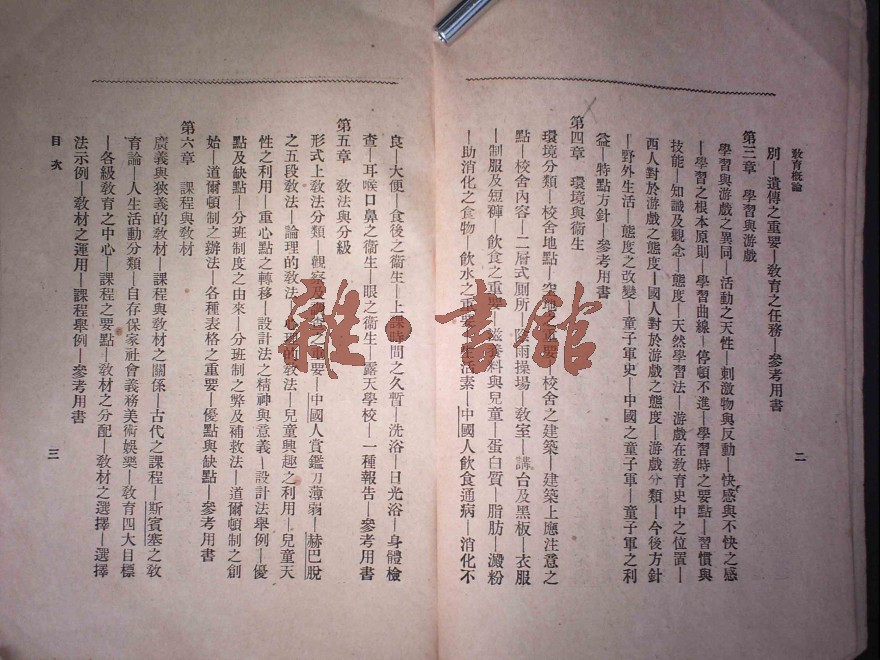 教育概論
二
別—遺傳之重要—教育之任務—參考用書
第三章　學習與游戲
學習與游戲之異同—活動之天性—刺激物與反動—快感與不快之感
—學習之根本原則—學習曲線—停頓不進—學習時之要點—習慣與
技能—知識及觀念—態度—天然學習法—游戲在教育史中之位置—
西人對於游戲之態度—國人對於游戲之態度—游戲分類—今後方針
—野外生活—態度之改變—童子軍史—中國之童子軍—童子軍之利
益—特點方針—參考用書
第四章　環境與衞生
環境分類—校舍地點—空地之重要—校舍之建築—建築上應注意之
點—校舍內容—二層式厠所—陰雨操場—敎室—講台及黑板—衣服
—制服及短褲—飲食之重要—滋養料與兒童—蛋白質—脂肪—澱粉
—助消化之食物—飲水之重要—生活素—中國人飲食通病—消化不
良—大便—食後之衞生—上課時間之久暫—洗浴—日光浴—身體檢
查—耳喉口鼻之衞生—眼之衞生—露天學校—一種報告—參考用書
第五章　敎法與分級
形式上敎法分類—觀察及調查之重要—中國人賞鑑力薄弱—赫巴脫
之五段敎法—論理的敎法—心理的敎法—兒童興趣之利用—兒童天
性之利用—重心點之轉移—設計法之精神與意義—設計法舉例—優
點及缺點—分班制度之由來—分班制之弊及補救法—道爾頓制之創
始—道爾頓制之辦法—各種表格之重要—優點與缺點—參考用書
第六章　課程與敎材
廣義與狹義的敎材—課程與敎材之關係—古代之課程—斯賓塞之敎
育論—人生活動分類—自存保家社會義務美術娛樂—敎育四大目標
—各級敎育之中心—課程之要點—敎材之分配—敎材之選擇—選擇
法示例—敎材之運用—課程舉例—參考用書
目次
三
雜·書館